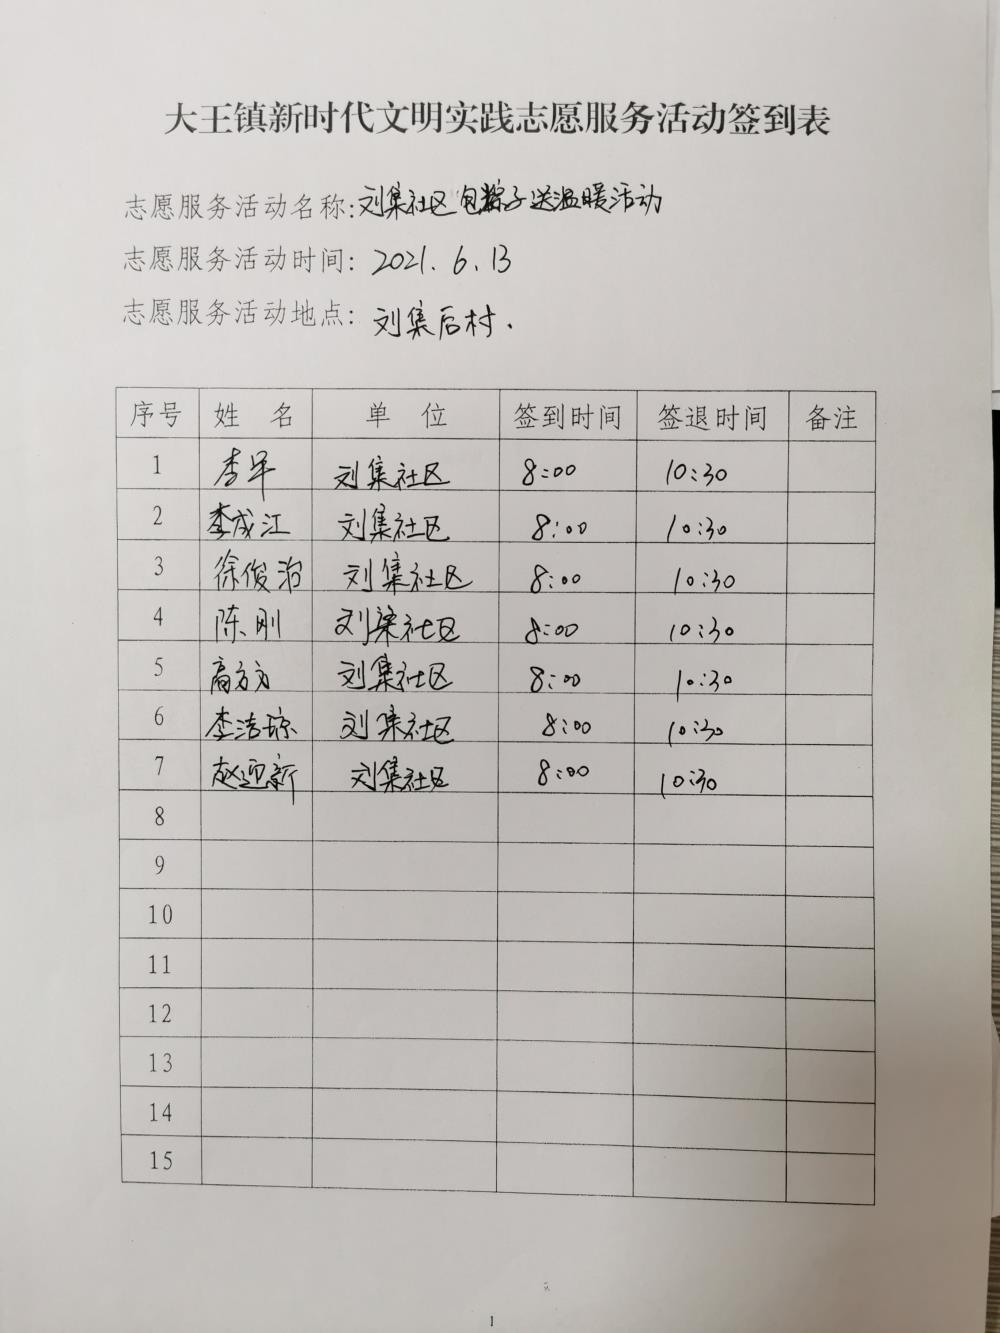 大王镇新时代文明实践志愿服务活动签到表
志愿服务活动名称:刘集社区包粽子送温暖活动
志愿服务活动时间: 2021.6.13
志愿服务活动地点: 刘集后村.
序号 姓 名 单 位 签到时间 签退时间 备注
1 刘集社区 8:00 10:30
2 李成江 刘集社区 8:00 10:30
3 徐俊治 刘集社区 8:00 10:30
4 陈刚 刘集社区 8:00 10:30
5 高方方 刘集社区 8:00 10:30
6 李洁琼 刘集社区 8:00 10:30
7 赵迎新 刘集社区 8:00 10:30
8
9
10
11
12
13
14
15
1